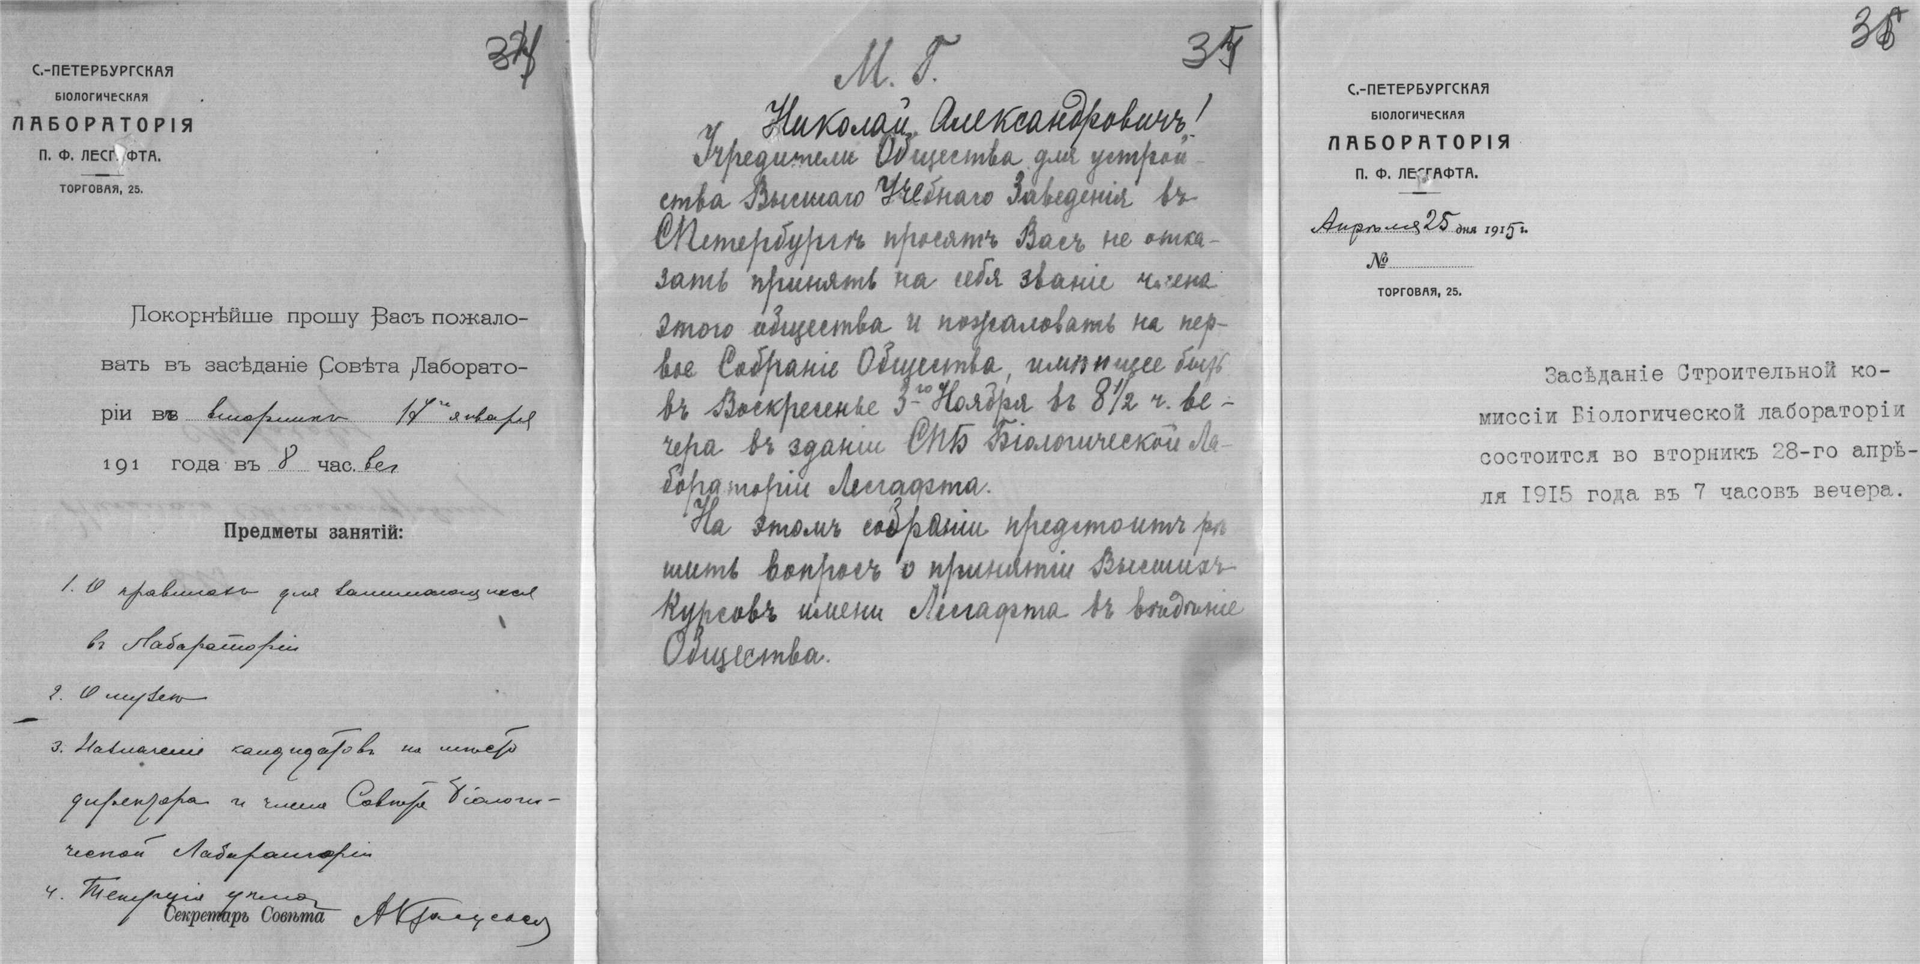 С.-ПЕТЕРБУРГСКАЯ
БІОЛОГИЧЕСКАЯ
ЛАБОРАТОРІЯ
П. Ф. ЛЕСГАФТА.
ТОРГОВАЯ, 25.
Покорнѣйше прошу Васъ пожало-
вать въ засѣданіе Совѣта Лаборато-
ріи въ вторникъ 17го января
191 года въ 8 час. веч
Предметы занятій:
1. О правилахъ для занимающихся
въ Лабораторіи
2. О музеѣ
3. Назначеніе кандидатовъ на мѣсто
директора и члена Совѣта Біологи-
ческой Лабораторіи
4. Текущія дѣла
Секретарь Совѣта
М. Г.
Николай Александровичъ!
Учредители Общества для устрой-
ства Высшаго Учебнаго Заведенія въ
СПетербургѣ просятъ Васъ не отка-
зать принять на себя званіе члена
этого общества и пожаловать на пер-
вое Собраніе Общества, имѣющее быть
въ Воскресенье 3-го Ноября въ 8 1/2 ч. ве-
чера въ зданіи СПБ Біологической Ла-
бораторіи Лесгафта.
На этомъ собраніи предстоитъ рѣ
шить вопросъ о принятіи Высшихъ
Курсовъ имени Лесгафта въ вѣдѣніе
Общества.
С.-ПЕТЕРБУРГСКАЯ
БІОЛОГИЧЕСКАЯ
ЛАБОРАТОРІЯ
П. Ф. ЛЕСГАФТА.
Апрѣля 25 дня 1915 г.
№
ТОРГОВАЯ, 25.
Засѣданіе Строительной ко-
миссіи Біологической лабораторіи
состоится во вторникъ 28-го апрѣ-
ля 1915 года въ 7 часовъ вечера.